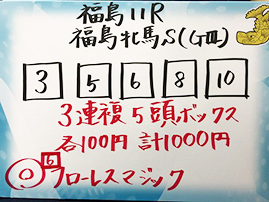 福島11R
福島牝馬S(GⅢ)
3 5 6 8 10
3連複5頭ボックス
各100円 計1000円
◎6フローレスマジック